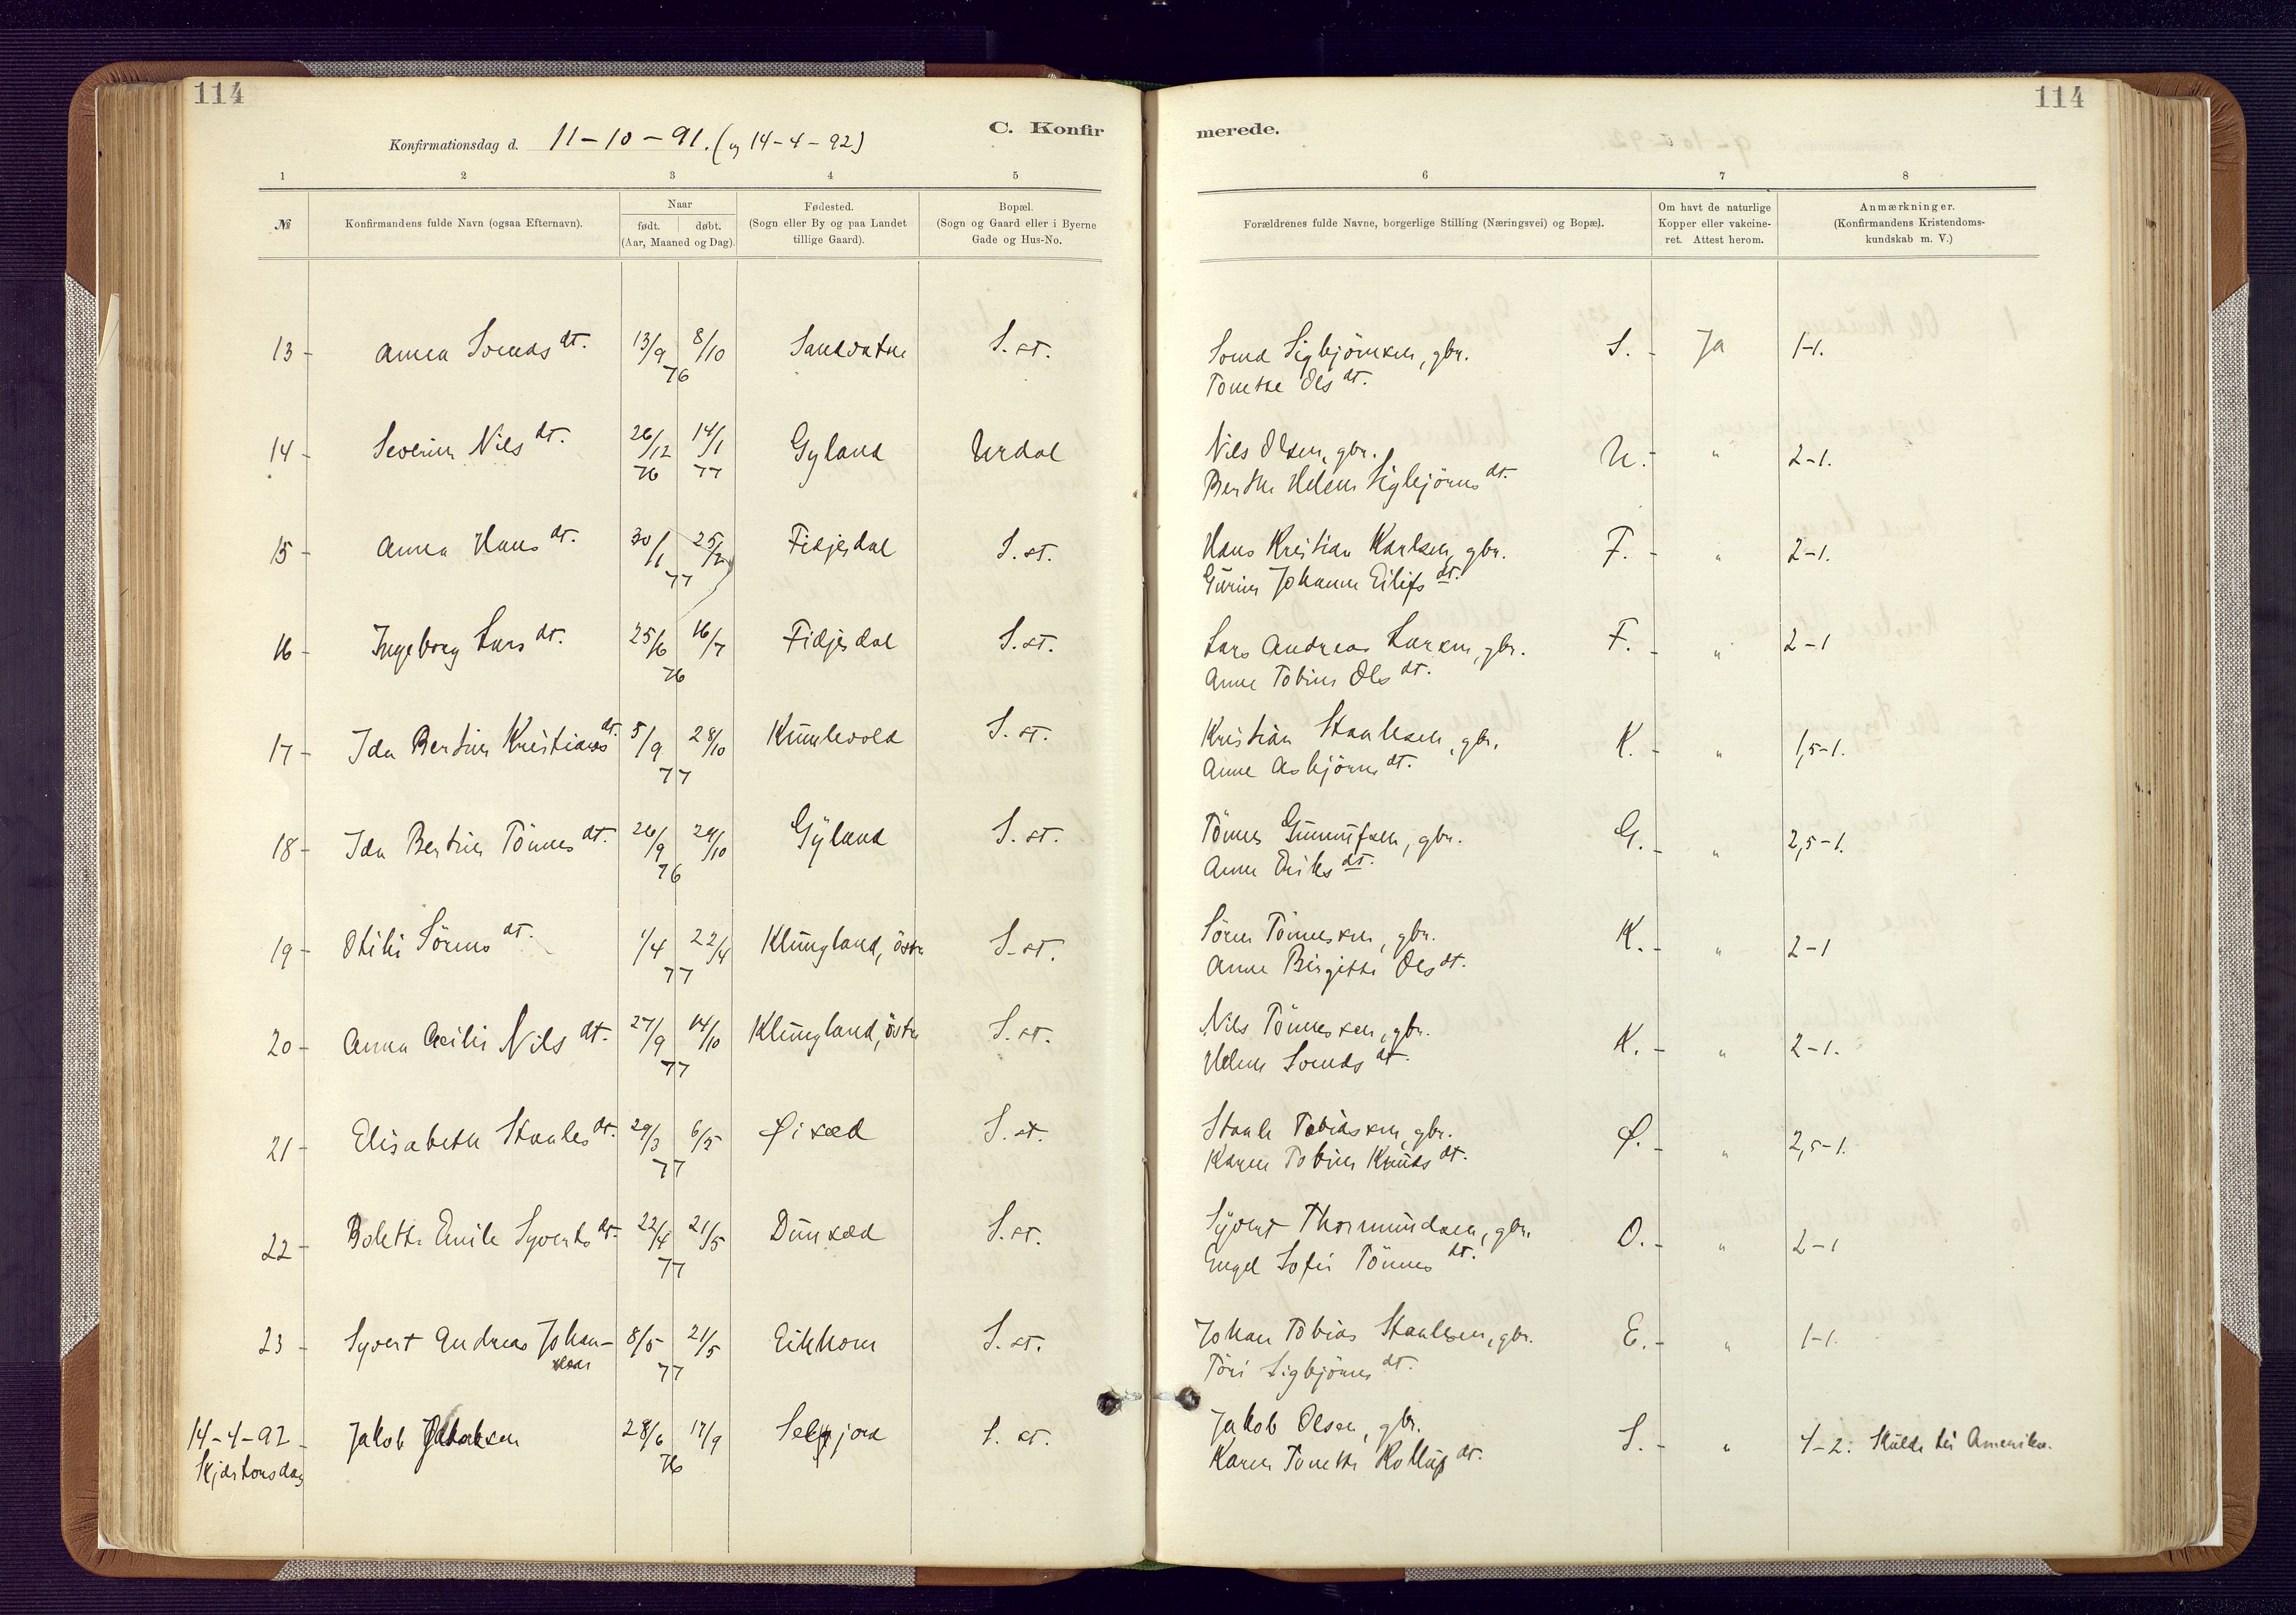 114
114
C. Konfir
merede.
Konfirmationsdag d. 11-10-91. (og 14-4-92)
1 2 3 4 5 6 7 8
№ Konfirmandens fulde Navn (ogsaa Efternavn). Naar født. døbt. (Aar, Maaned og Dag). Fødested. (Sogn eller By og paa Landet tillige Gaard). Bopæl. (Sogn og Gaard eller i Byerne Gade og Hus-No. Forældrenes fulde Navne, borgerlige Stilling (Næringsvei) og Bopæl. Om havt de naturlige Kopper eller vakcineret. Attest herom. Anmærkninger. (Konfirmandens Kristendomskundskab m. V.)
13 - Anna Svends dt. 13/9 8/10 Sandvatne S. st. Svend Sigbjörnsen, gbr. S. - Ja 1-1.
76 Tonette Ols dt.
14 - Severine Nils dt. 26/12 14/1 Gyland Urdal Nils Olsen, gbr. U. - " 2-1.
76 77 Berthe Helene Sigbjörns dt.
15 - Anna Hans dt. 30/1 25/2 Fidjesdal S. st. Hans Kristian Karlsen, gbr. F. - " 2-1.
77 Gurine Johanne Eilifs dt.
16 - Ingeborg Lars dt. 25/6 16/7 Fidjesdal S. st. Lars Andreas Larsen, gbr. F. - " 2-1
76 Anne Tobine Ols dt.
17 - Ida Bertine Kristians dt. 5/9 28/10 Kumlevold S. st. Kristian Staalesen, gbr. K. - " 1,5-1.
77 Anne Asbjörns dt.
18 - Ida Bertine Tönnes dt. 26/9 29/10 Gyland S. st. Tönnes Gunnufsen, gbr. G. - " 2,5-1.
76 Anne Eriks dt.
19 - Otilie Sörens dt. 1/4 22/4 Klungland, östre S. st. Sören Tönnessen, gbr. K. - " 2-1
77 Anne Birgitte Ols dt.
20 - Anna Cecilie Nils dt. 27/9 14/10 Klungland, östre S. st. Nils Tönnessen, gbr. K. - " 2-1.
77 Helene Svends dt.
21 - Elisabeth Staales dt. 29/3 6/5 Øisæd S. st. Staale Tobiassen, gbr. Ø. - " 2,5-1.
77 Karen Tobine Knuds dt.
22 - Bolette Emile Syverts dt. 22/4 21/5 Dunsæd S. st. Syvert Thormundsen, gbr. D. - " 2-1
77 Engel Sofie Tönnes dt.
23 - Syvert Andreas Johan- 8/5 21/5 Eikhom S. st. Johan Tobias Staalesen, gbr. E. - " 1-1.
sen 77 Töri Sigbjörns dt.
14-4-92 - Jakob Jakobsen 28/6 17/9 Seljord S. st. Jakob Olsen, gbr. S. - " 4-2. Skulde til Amerika.
Skjærtorsdag 76 Karen Tonette Rolluf dt.